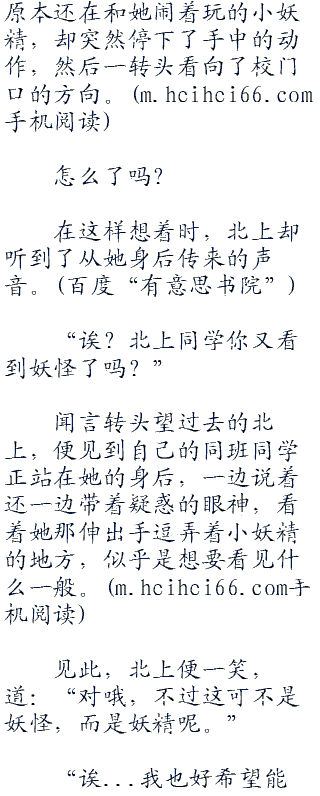 原本还在和她闹着玩的小妖
精，却突然停下了手中的动
作，然后一转头看向了校门
口的方向。(m.hcihci66.com
手机阅读)
怎么了吗？
在这样想着时，北上却
听到了从她身后传来的声
音。(百度“有意思书院”)
“诶？北上同学你又看
到妖怪了吗？”
闻言转头望过去的北
上，便见到自己的同班同学
正站在她的身后，一边说着
还一边带着疑惑的眼神，看
着她那伸出手逗弄着小妖精
的地方，似乎是想要看见什
么一般。(m.hcihci66.com手
机阅读)
见此，北上便一笑，
道：“对哦，不过这可不是
妖怪，而是妖精呢。”
“诶...我也好希望能